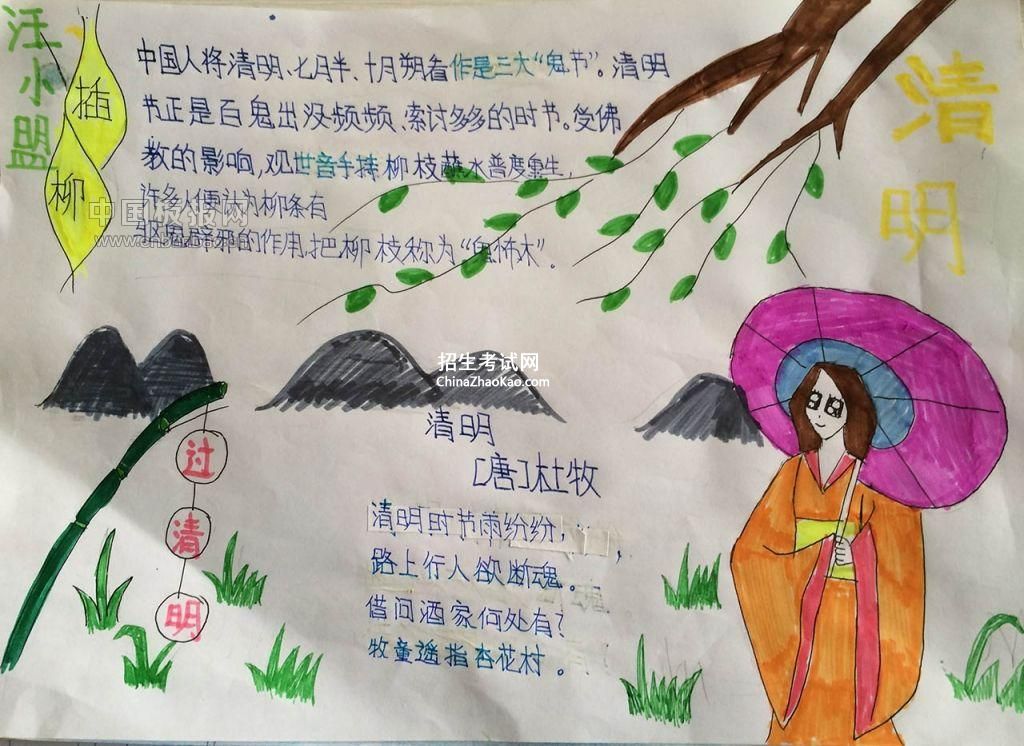 汪小盟
插柳
中国人将清明、七月半、十月朔看作是三大“鬼节”。清明
节正是百鬼出没频频、索讨多多的时节。受佛
教的影响,观世音手持柳枝蘸水普度众生,
许多人便认为柳条有
驱鬼辟邪的作用,把柳枝称为“鬼怖木”。
清明
中国板报网
招生考试网
ChinaZhaoKao.com
过清明
清明
[唐]杜牧
清明时节雨纷纷,
路上行人欲断魂。
借问酒家何处有?
牧童遥指杏花村。